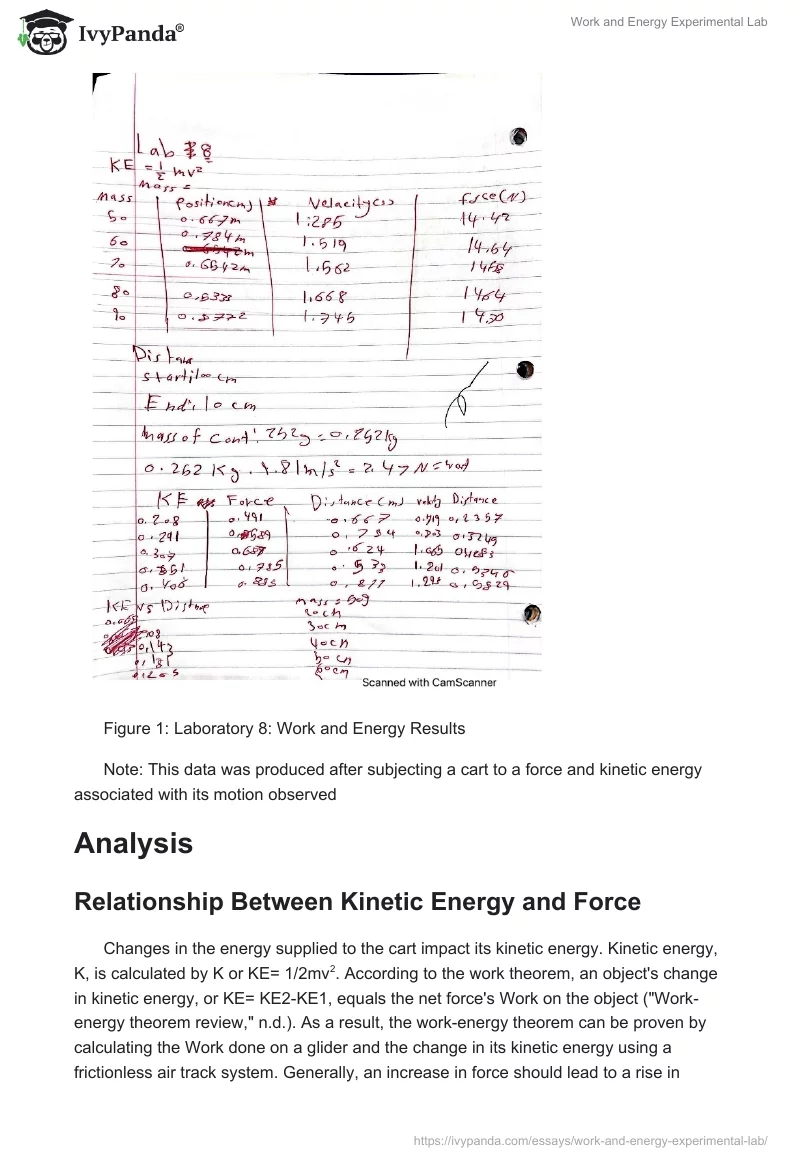 IvyPanda®
Work and Energy Experimental Lab
Lab #8
KE = 1/2 mv²
mass =
Mass Position(m) Velacity(s) force(N)
50 0.667m 1.285 14.42
60 0.784m 1.519 14.64
70 0.6542m 1.562
80 1.668 1464
90 1.745 14.30
Distan
start:100cm
End: 10cm
mass of cont: 252g = 0.252kg
KE Force Distance(m) Distance
0.208 0.491 0.667 0.919 0.2357
0.291 0.784
0.624
0.785
KE vs Distane mass = 50g
20cm
30cm
0.143 40cm
50cm
60cm
Scanned with CamScanner
Figure 1: Laboratory 8: Work and Energy Results
Note: This data was produced after subjecting a cart to a force and kinetic energy
associated with its motion observed
Analysis
Relationship Between Kinetic Energy and Force
Changes in the energy supplied to the cart impact its kinetic energy. Kinetic energy,
K, is calculated by K or KE= 1/2mv². According to the work theorem, an object's change
in kinetic energy, or KE= KE2-KE1, equals the net force's Work on the object ("Work-
energy theorem review," n.d.). As a result, the work-energy theorem can be proven by
calculating the Work done on a glider and the change in its kinetic energy using a
frictionless air track system. Generally, an increase in force should lead to a rise in
https://ivypanda.com/essays/work-and-energy-experimental-lab/